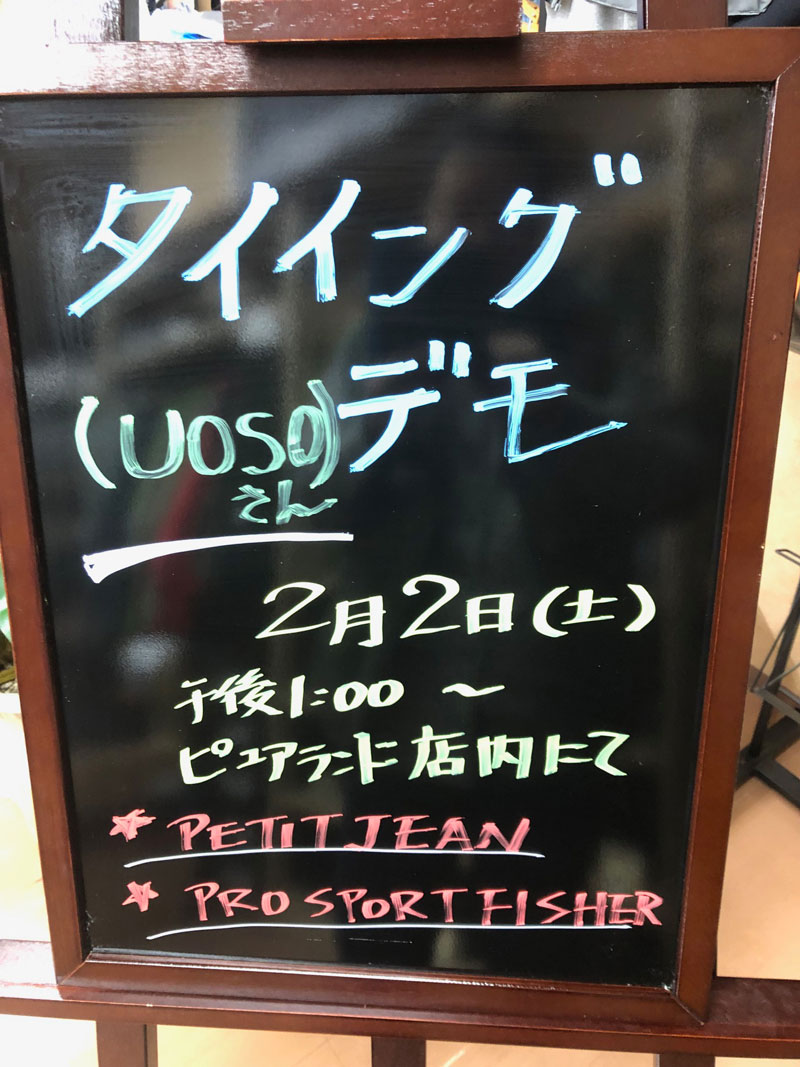 タイイング
デモ
(UOSO)
さん
2月2日(土)
午後1:00 〜
ピュアランド店内にて
★ PETITJEAN
★ PRO SPORT FISHER